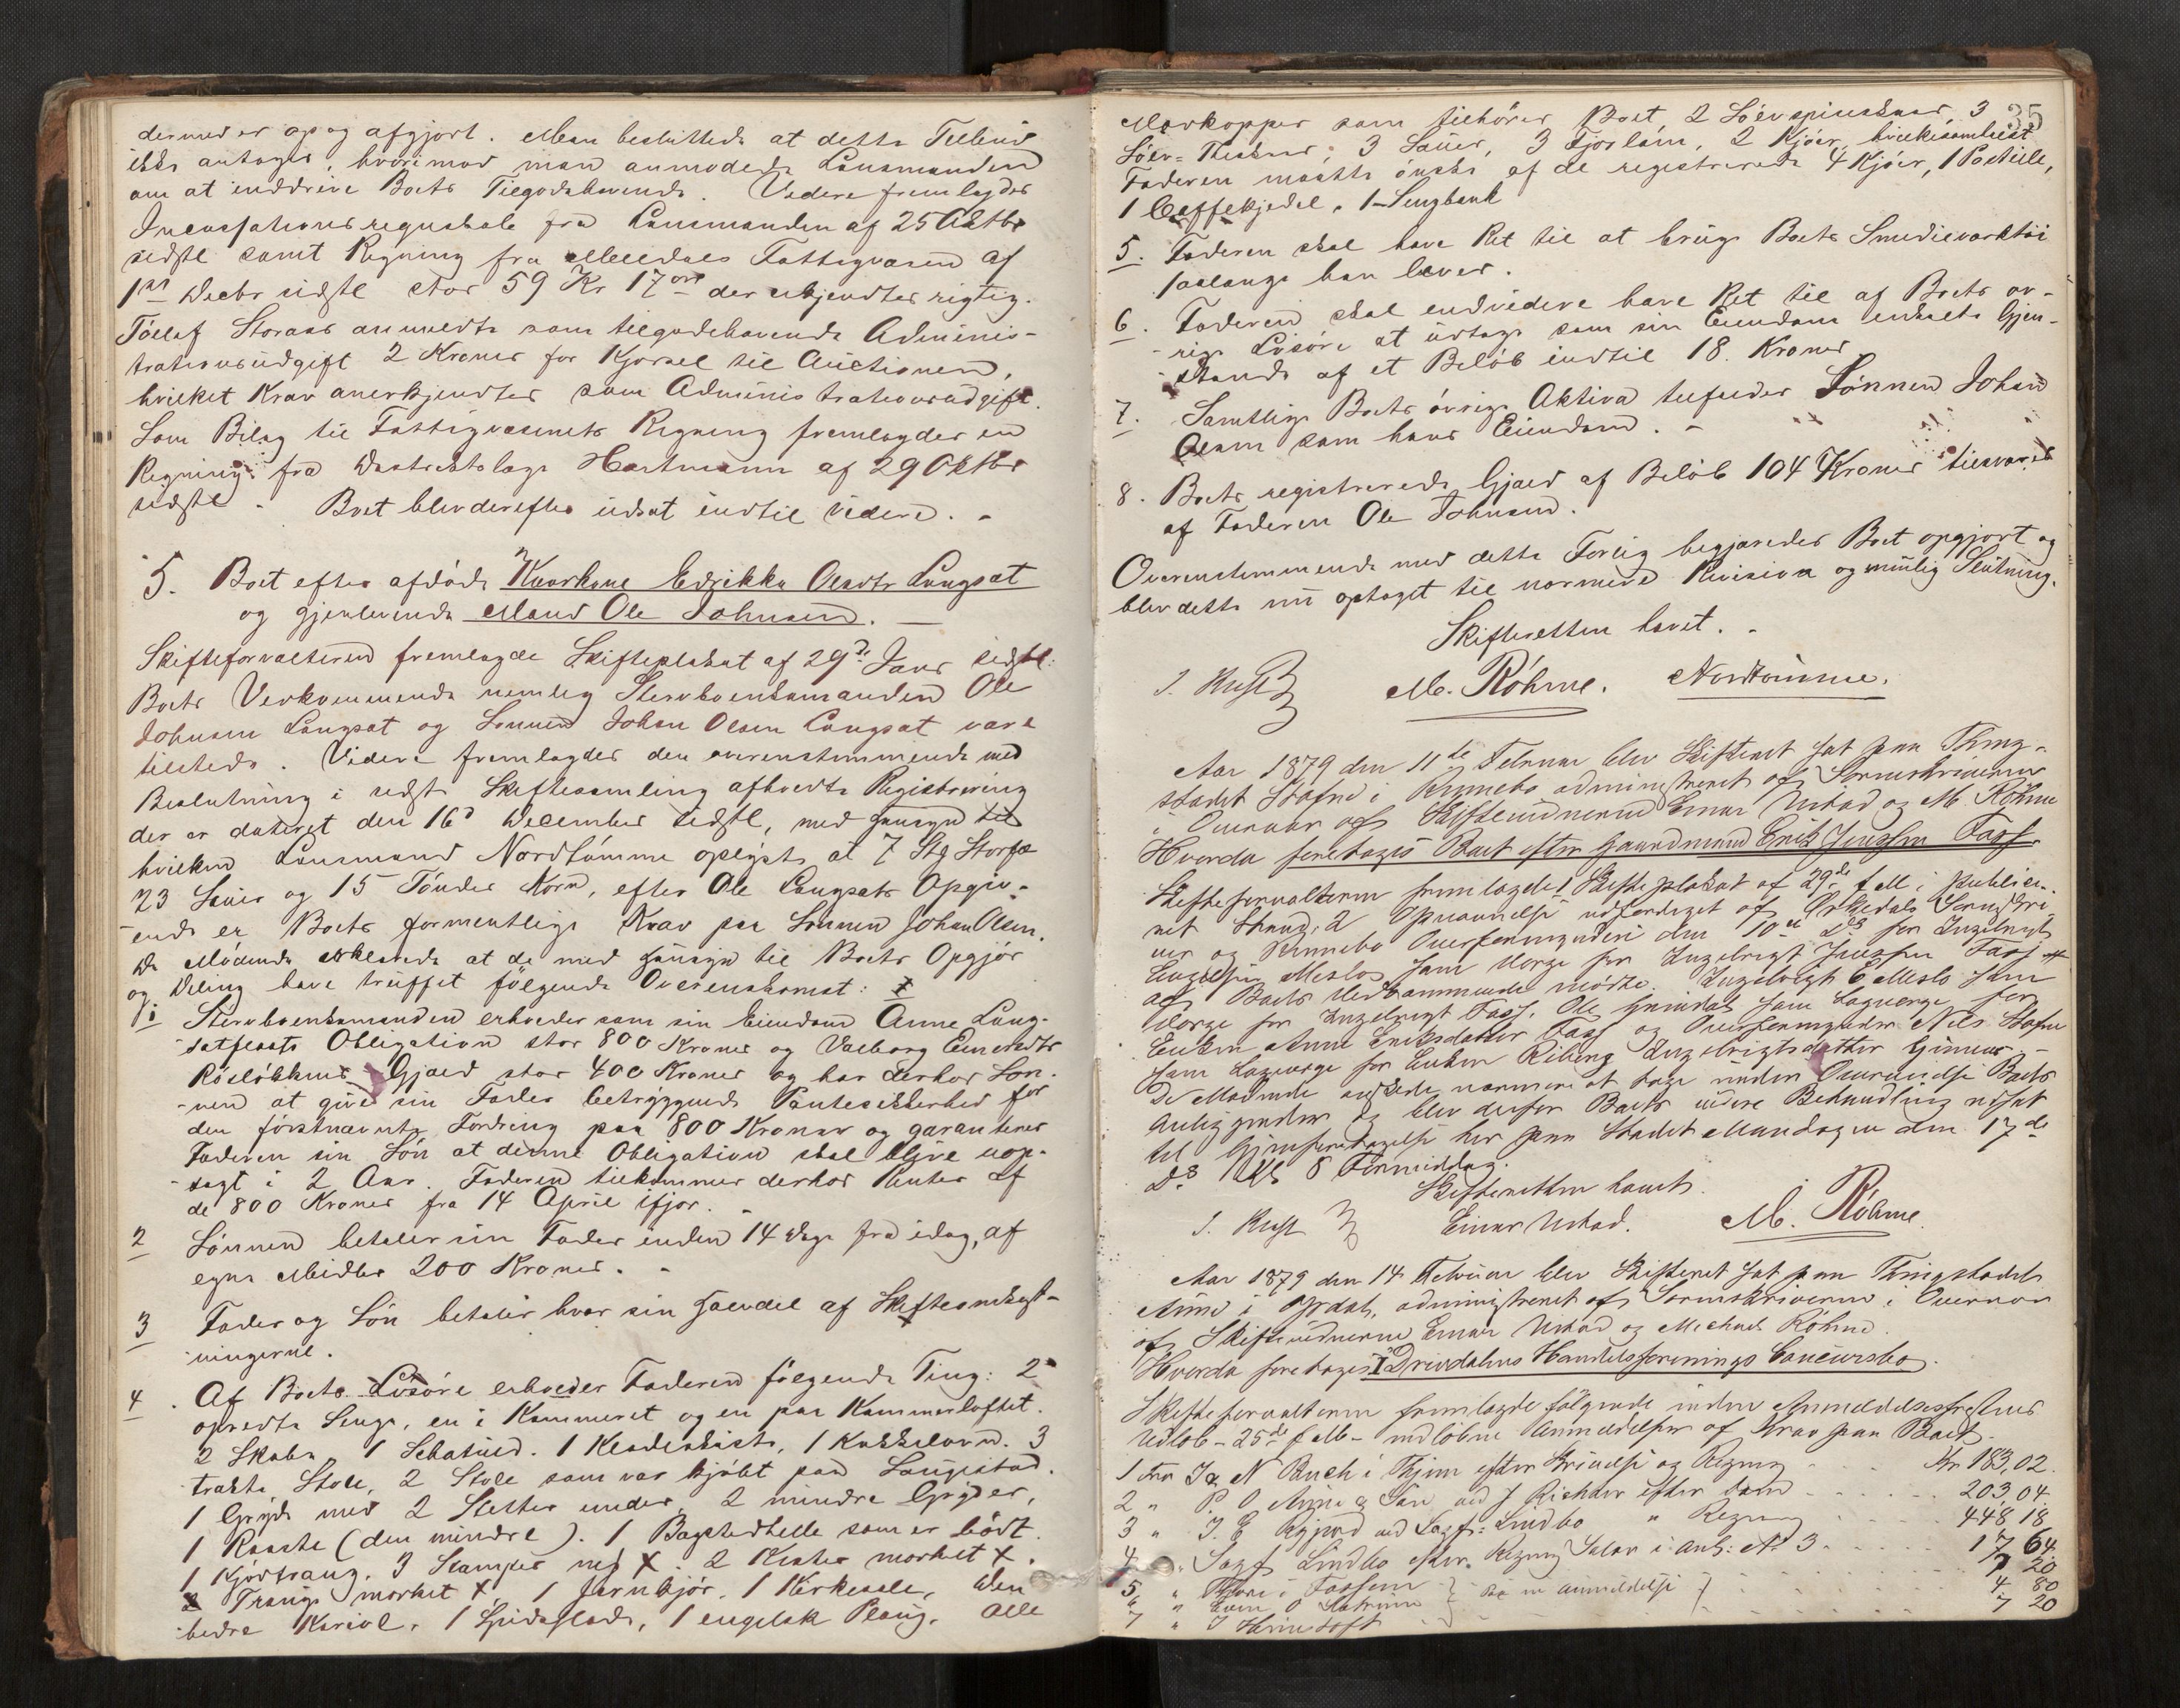 dermed er op og afgjort. Man besluttede at dette Tilbud
ikke antages, hvorimod man anmodede Lensmanden
om at inddrive Boets Tilgodehavende. Videre fremlagdes
Incassationsregnskab fra Lensmanden af 25 Oktbr
sidstl samt Regning fra Meldals Fattigvæsen af
1ste Decbr sidstl stor 59 Kr 17 øre der erkjendtes rigtig.
Tollef Storaas anmeldte som tilgodehavende Adminis-
trationsudgift 2 Kroner for Kjørsel til Auctionen,
hvilket Krav anerkjendtes som Administrationsudgift.
Som Bilag til Fattigvæsenets Regning fremlagdes en
Regning fra Distriktslæge Hartmann af 29 Oktbr
sidstl. Boet blev derefter udsat indtil videre.
5. Boet efter afdøde Kaarkone Edrikka Olsdtr Langsæt
og gjenlevende Mand Ole Johnsen.
Skifteforvalteren fremlagde Skifteplakat af 29de Janr sidstl.
Boets Vedkommende nemlig Stervboenkemanden Ole
Johnsen Langsæt og Sønnen Johan Olsen Langsæt vare
tilstede. Videre fremlagdes den overensstemmende med
Beslutning i sidste Skiftesamling afholdte Registrering
der er dateret den 16de December sidstl, med Hensyn til
hvilken Lensmand Nordtømme oplyste at 7 Stg Storfæ
23 Sauer og 15 Tønder Korn, efter Ole Langsæts Opgiv-
ende er Boets formentlige Krav paa Sønnen Johan Olsen.
De Mødende erklærede at de med Hensyn til Boets Opgjør
og Deling have truffet følgende Overenskomst:
1. Stervboenkemanden erholder som sin Eiendom Anne Lang-
sætjerets Obligation stor 800 Kroner og Valborg Einersdtr
Rosløkkens Gjæld stor 400 Kroner og har derhos Søn-
nen at give sin Fader betryggende Pantesikkerhed for
den førstnævnte Fordring paa 800 Kroner og garanterer
Faderen sin Søn at denne Obligation skal blive uop-
sagt i 2 Aar. Faderen tilkommer derhos Renter af
de 800 Kroner fra 14 April ifjor.
2 Sønnen betaler sin Fader inden 14 Dage fra idag, af
egne Midler 200 Kroner.
3 Fader og Søn betaler hver sin Halvdel af Skifteomkost-
ningerne.
4. Af Boets Løsøre erholder Faderen følgende Ting: 2
opredte Senge, en i Kammeret og en paa Kammerloftet.
2 Skabe 1 Schatuld. 1 Klædekiste, 1 Kakkelovn. 3
trakte Stole, 2 Stole som var kjøbt paa Laugistad.
1 Gryde med 2 Sletter under, 2 mindre Gryder,
1 Kaarde (den mindre). 1 Bagstedhelle som er bødt.
1 Kjørtraug. 3 Stamper med X. 2 Kister merket X.
2 Trauge merket X, 1 Jernkjør. 1 Kirkesele, den
bedre Kariol, 1 Spidsslæde, 1 engelsk Ploug. Alle
35
Mærkopper som tilhører Boet 2 Sølvspiseskeer, 3
Sølv-Theskeer, 3 Sauer, 3 Fjorlam, 2 Kjør, hvilkesomhelst
Faderen maatte ønske af de registrerede 4 Kjør, 1 Postille,
1 Caffekjedel, 1 Sengbenk
5. Faderen skal have Ret til at bruge Boets Smedieværktøi
saalænge han lever.
6. Faderen skal endvidere have Ret til af Boets øv-
rige Løsøre at udtage som sin Eiendom enkelte Gjen-
stande af et Beløb indtil 18 Kroner
7. Samtlige Boets øvrige Aktiva tilfalder Sønnen Johan
Olsen som hans Eiendom.
8. Boets registrerede Gjæld af Beløb 104 Kroner tilsvares
af Faderen Ole Johnsen.
Overensstemmende med dette Forlig begjæredes Boet opgjort og
blev dette nu optaget til nærmere Revision og mulig Slutning.
Skifteretten hævet.
M. Røhme. Nordtømme.
Aar 1879 den 11te Februar blev Skifteret sat paa Thing-
stedet Stafne i Rennebo administreret af Sorenskriveren
i Overvær af Skiftevidnerne Einar Urstad og M. Røhme
Hvorda foretages Boet efter Gaardmand Erik Jensen Fass.
Skifteforvalteren fremlagde 1 Skifteplakat af 29de f M i publice-
ret Stand, 2 Opnævnelse udfærdiget af Orkedals Sorenskri
ver og Rennebo Overformynderi den 10de ds for Ingebrigt
Engelsen Meslo som Værge for Ingebrigt Jensen Fass
af Boets Vedkommende mødte: Ingebrigt E Meslo som
Værge for Ingebrigt Fass, Ole Grindal som Laugværge for
Enken Anne Eriksdatter Fass og Overformynder Nils Stafne
som Laugværge for Enken Ribeng Ingebrigtsdatter
De Mødende ønskede nærmere at tage under Overveielse Boets
Anliggender og blev derfor Boets videre Behandling udsat
til Gjenforetagelse her paa Stedet Mandagen den 17de
ds Kl 8 Formiddag.
Skifteretten hævet.
Einar Urstad. M. Røhme.
Aar 1879 den 14 Februar blev Skifteret sat paa Thingstedet
Aune i Opdal, administreret af Sorenskriveren i Overvær
af Skiftevidnerne Einar Urstad og Michael Røhme.
Hvorda foretages 1 Drivdalens Handelsforenings Concursbo.
Skifteforvalteren fremlagde følgende inden Anmeldelsesfristens
Udløb - 25de f M - indløbne Anmeldelser af Krav paa Boet.
1 Fra Ja N Buch i Thjem efter Skrivelse og Regning Kr 183,02.
2 " P. O Aune & Søn ved J Richter efter samme 203 04.
3 " J. E ved Sagf: Lindbo " Regning 448 18.
4 " Sagf Lindbo efter Regning Salær i anl: No 3. 17 64.
5 " Thore i Fossem 7 20
6 " Even O 4 80
7 " J 7 20